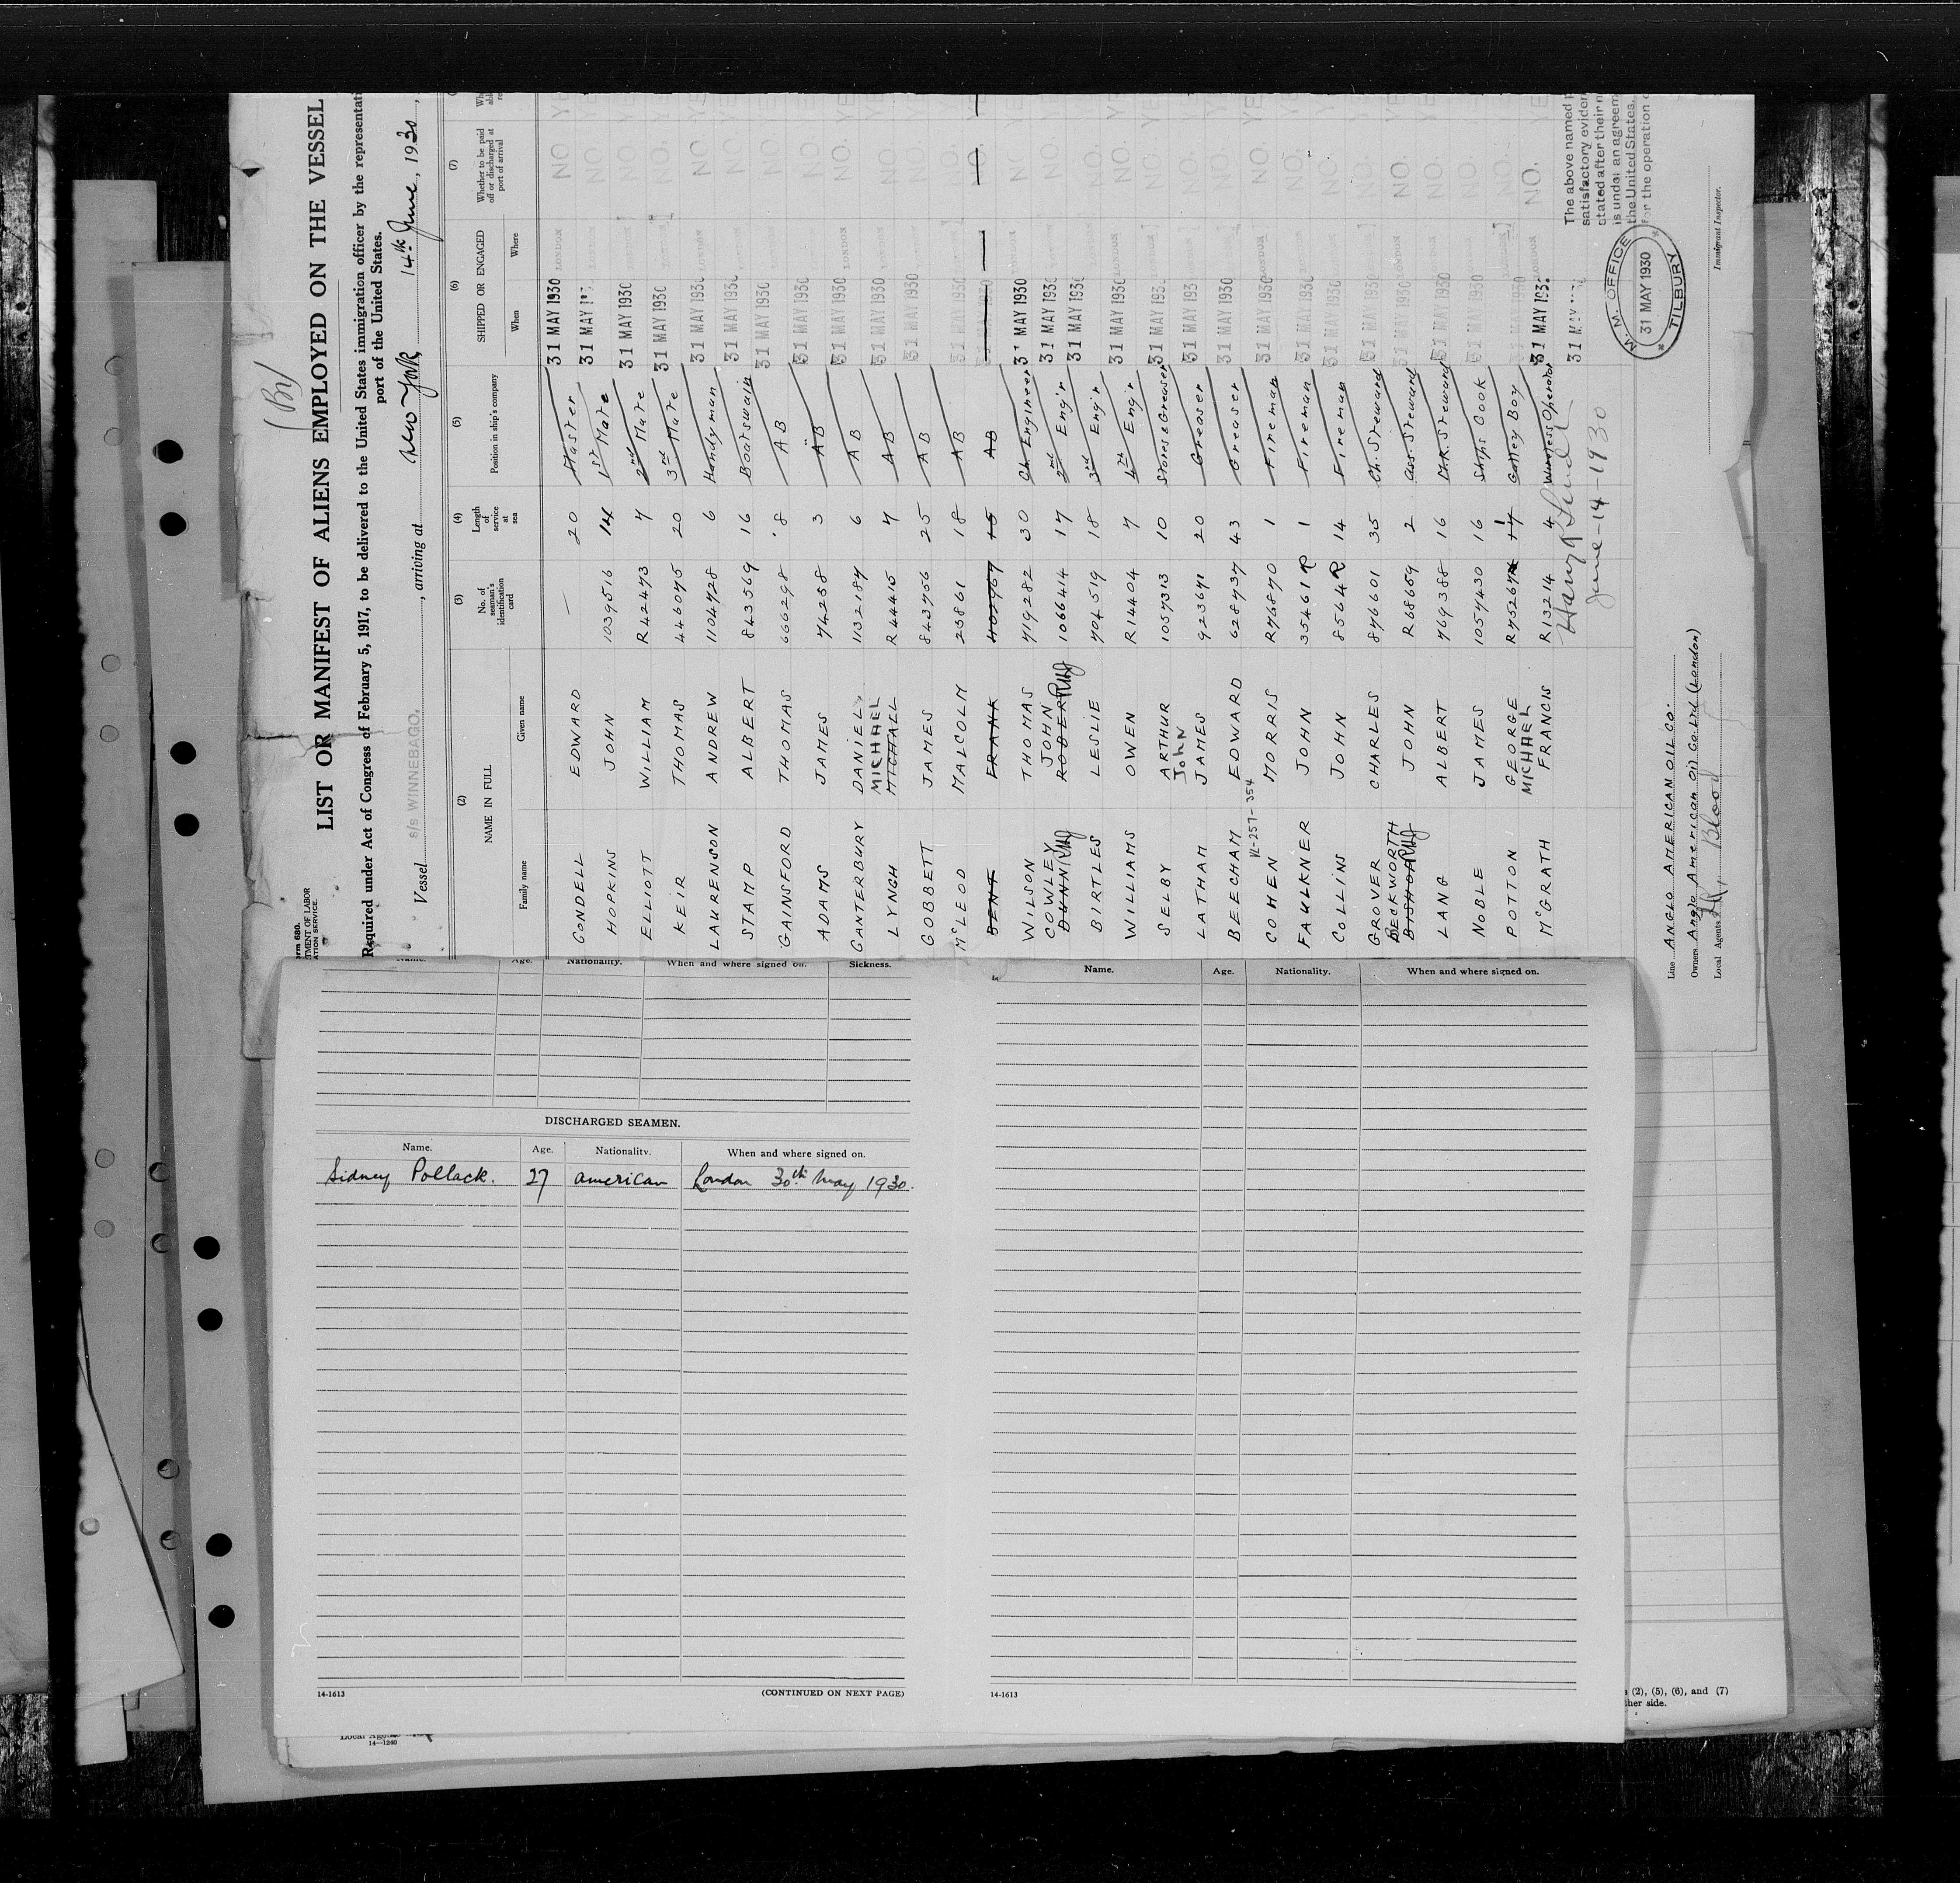 (Br)
LIST OR MANIFEST OF ALIENS EMPLOYED ON THE VESSEL
Required under Act of Congress of February 5, 1917, to be delivered to the United States immigration officer by the representati
port of the United States.
Vessel s/s WINNEBAGO, arriving at New York, 14th June, 1930,
(2) (3) (4) (5) (6) (7)
NAME IN FULL No. of seaman's identification card Length of service at sea Position in ship's company SHIPPED OR ENGAGED Whether to be paid off or discharged at port of arrival
Family name Given name When Where
CONDELL EDWARD — 20 Master 31 MAY 1930 LONDON NO
HOPKINS JOHN 1039516 14 1st Mate 31 MAY LONDON NO
ELLIOTT WILLIAM R42473 7 2nd Mate 31 MAY 1930 LONDON NO
KEIR THOMAS 446075 20 3rd Mate 31 MAY 1930 LONDON NO.
LAURENSON ANDREW 1104728 6 Handyman 31 MAY 1930 LONDON NO.
STAMP ALBERT 843569 16 Boatswain 31 MAY 1930 LONDON NO
GAINSFORD THOMAS 666298 8 AB 31 MAY 1930 LONDON NO
ADAMS JAMES 74258 3 AB 31 MAY 1930 LONDON NO
CANTERBURY DANIEL 1132187 6 AB 31 MAY 1930 LONDON NO.
LYNCH MICHAEL MICHALL R44415 7 AB 31 MAY 1930 LONDON NO
GOBBETT JAMES 843756 25 AB 31 MAY 1930 LONDON NO.
McLEOD MALCOLM 23861 18 AB 31 MAY 1930 NO.
BENT FRANK 402967 15 AB 1930 — NO.
WILSON THOMAS 719282 30 Ch. Engineer 31 MAY 1930 LONDON NO
COWLEY DUNN JOHN ROBERT 1066414 17 2nd Eng'r 31 MAY 1930 LONDON NO
BIRTLES LESLIE 704519 18 3rd Eng'r 31 MAY 1930 LONDON NO.
WILLIAMS OWEN R14404 7 4th Eng'r 31 MAY 1930 LONDON NO.
SELBY ARTHUR John 1057313 10 Stores & Greaser 31 MAY 1930 LONDON NO.
LATHAM JAMES 923671 20 Greaser 31 MAY 193 LONDON NO
BEECHAM EDWARD 628737 43 Greaser 31 MAY 1930 LONDON
VL-257-354
COHEN MORRIS R76870 1 Fireman 31 MAY 1930 LONDON NO.
FAULKNER JOHN 35461R 1 Fireman 31 MAY 1930 LONDON NO.
COLLINS JOHN 8564R 14 Fireman 31 MAY 1930 LONDON NO.
GROVER CHARLES 876601 35 Ch. Steward 31 MAY 1930 LONDON
BECKWORTH BISHOP JOHN R68659 2 Ass. Steward 31 MAY 1930 LONDON NO.
LANG ALBERT 769388 16 Steward 31 MAY 1930 LONDON NO.
NOBLE JAMES 1057430 16 Ships Cook 31 MAY 1930 LONDON NO.
POTTON GEORGE 1 17 Galley Boy 31 MAY 1930 LONDON NO.
McGRATH MICHAEL FRANCIS R13214 4 Wireless Operator 31 MAY 1930 LONDON NO.
31 MAY
June-14-1930
The above named
satisfactory eviden
stated after their n
is under an agreem
the United States.
for the operation
M. M. OFFICE
31 MAY 1930
TILBURY
Immigrant Inspector.
Line ANGLO AMERICAN OIL CO.
Owners Anglo American Oil Co. Ltd (London)
Local Agents Blood
Name. Age. Nationality. When and where signed on. Sickness.
DISCHARGED SEAMEN.
Name. Age. Nationality. When and where signed on.
Sidney Pollack. 27 american London 30th May 1930.
14-1613 (CONTINUED ON NEXT PAGE)
Name. Age. Nationality. When and where signed on.
14-1613
(2), (5), (6), and (7)
ther side.
Local Agents
14—1240